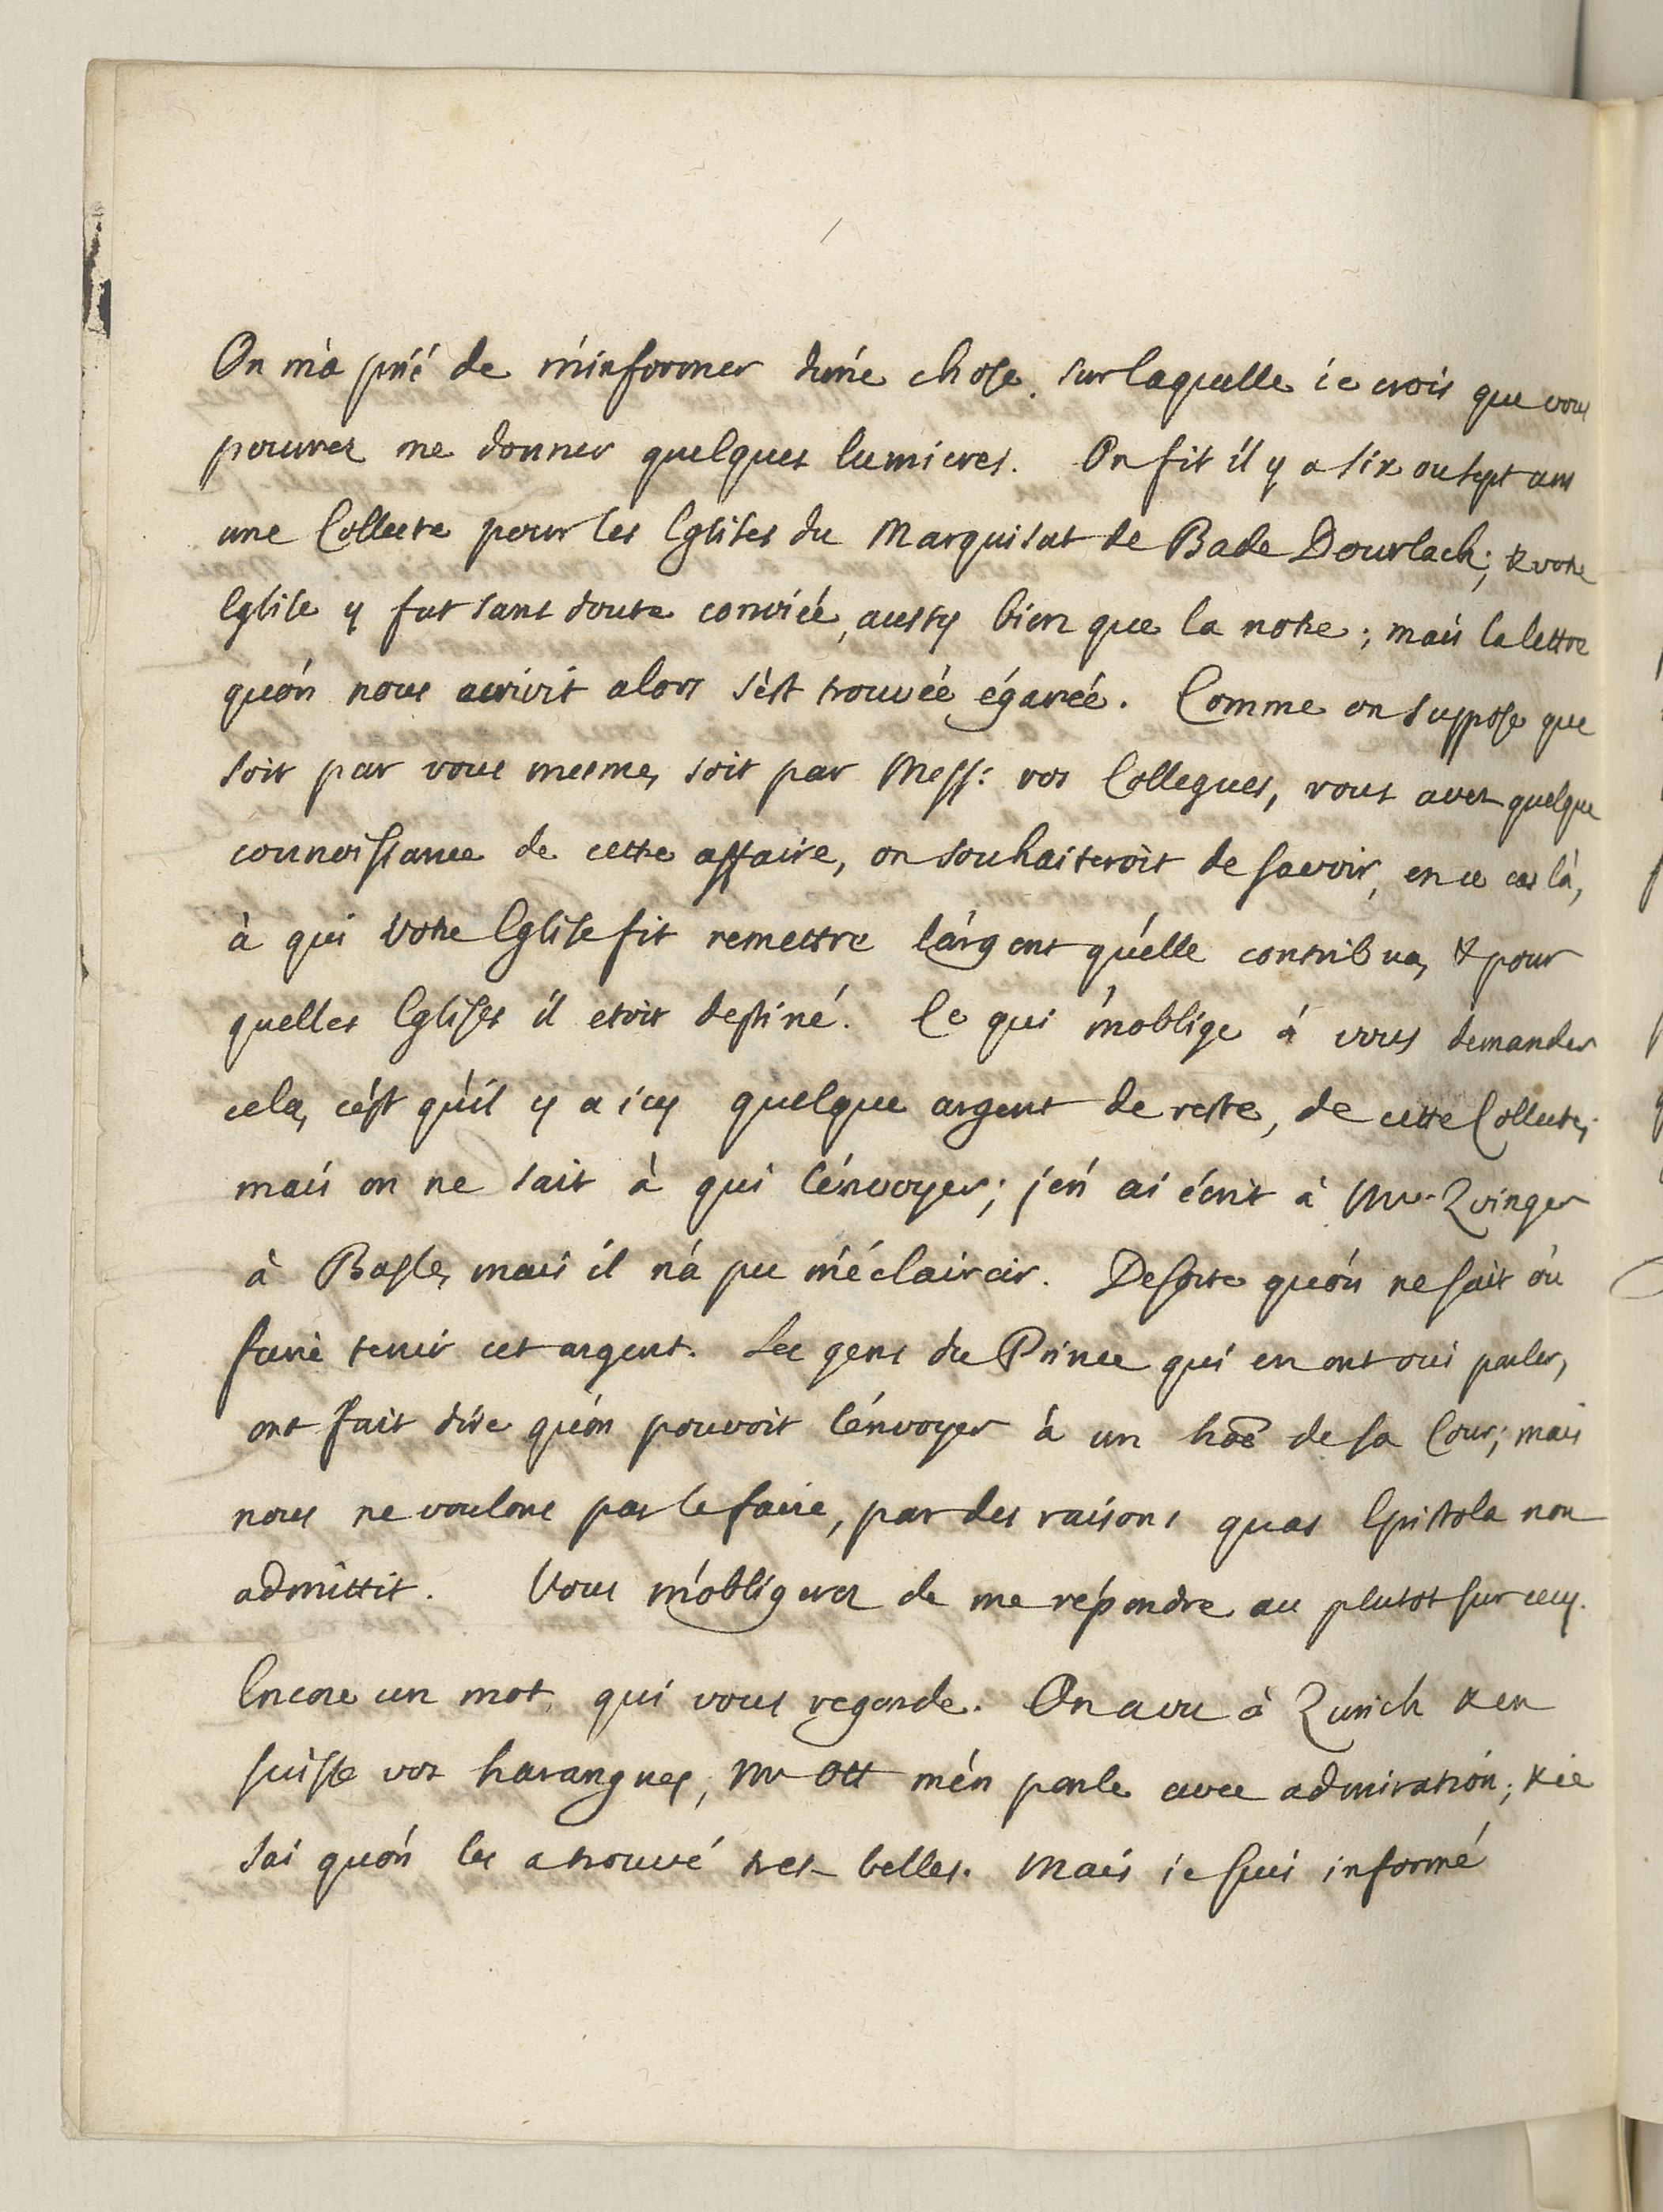 On m'a prié de m'informer d'une chose, sur laquelle ie crois que vous
pouvez me donner quelques lumieres. On fit il y a six ou sept ans
une Collecte pour les Eglises du Marquisat de Bade Dourlach; & votre
Eglise y fut sans doute conviée, aussy bien que la notre; mais la lettre
qu'on nous écrivit alors s'est trouvée égarée. Comme on suppose que
soit par vous mesme, soit par Mess: vos Collegues, vous avez quelque
connoissance de cette affaire, on souhaiteroit de savoir, en ce cas là,
à qui votre Eglise fit remettre l'argent qu'elle contribua, & pour
quelles Eglises il etoit destiné. Ce qui m'oblige à vous demander
cela, c'est qu'il y a icy quelque argent de reste, de cette Collecte,
mais on ne sait à qui l'envoyer; j'en ai écrit à Mr. Zvinger
à Basle, mais il n'a pu m'éclaircir. De sorte qu'on ne sait où
faire tenir cet argent. Les gens du Prince qui en ont oui parler,
ont fait dire qu'on pouvoit l'envoyer à un hoẽ de sa Cour; mais
nous ne voulons pas le faire, par des raisons quas Epistola non
admittit. Vous m'obligerez de me répondre au plutot sur cecy.
Encore un mot, qui vous regarde. On a vu à Zurich & en
suisse vos harangues, Mr Ott m'en parle avec admiration; & ie
sai qu'on les a trouvé tres belles. Mais ie suis informé